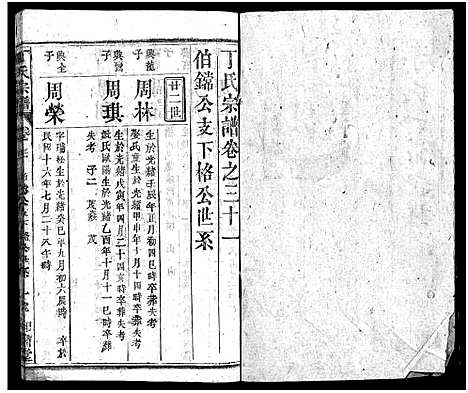 丁氏宗譜卷之三十一
伯鏋公支下格公世系
廿二世
興龍
子
周林
生於光緒壬辰年正月初四巳時卒葬失考
娶氏童生於光緒甲申年十月十四
興雲
子
周琪
生於光緒戊寅年四月二十四亥時卒葬失考
娶氏歐陽生於光緒乙酉年十月十一巳時卒葬
失考 子二
興全
子
周榮
字瑞松生於光緒癸巳年九月初六辰時 卒於
民國十六年七月二十八午時